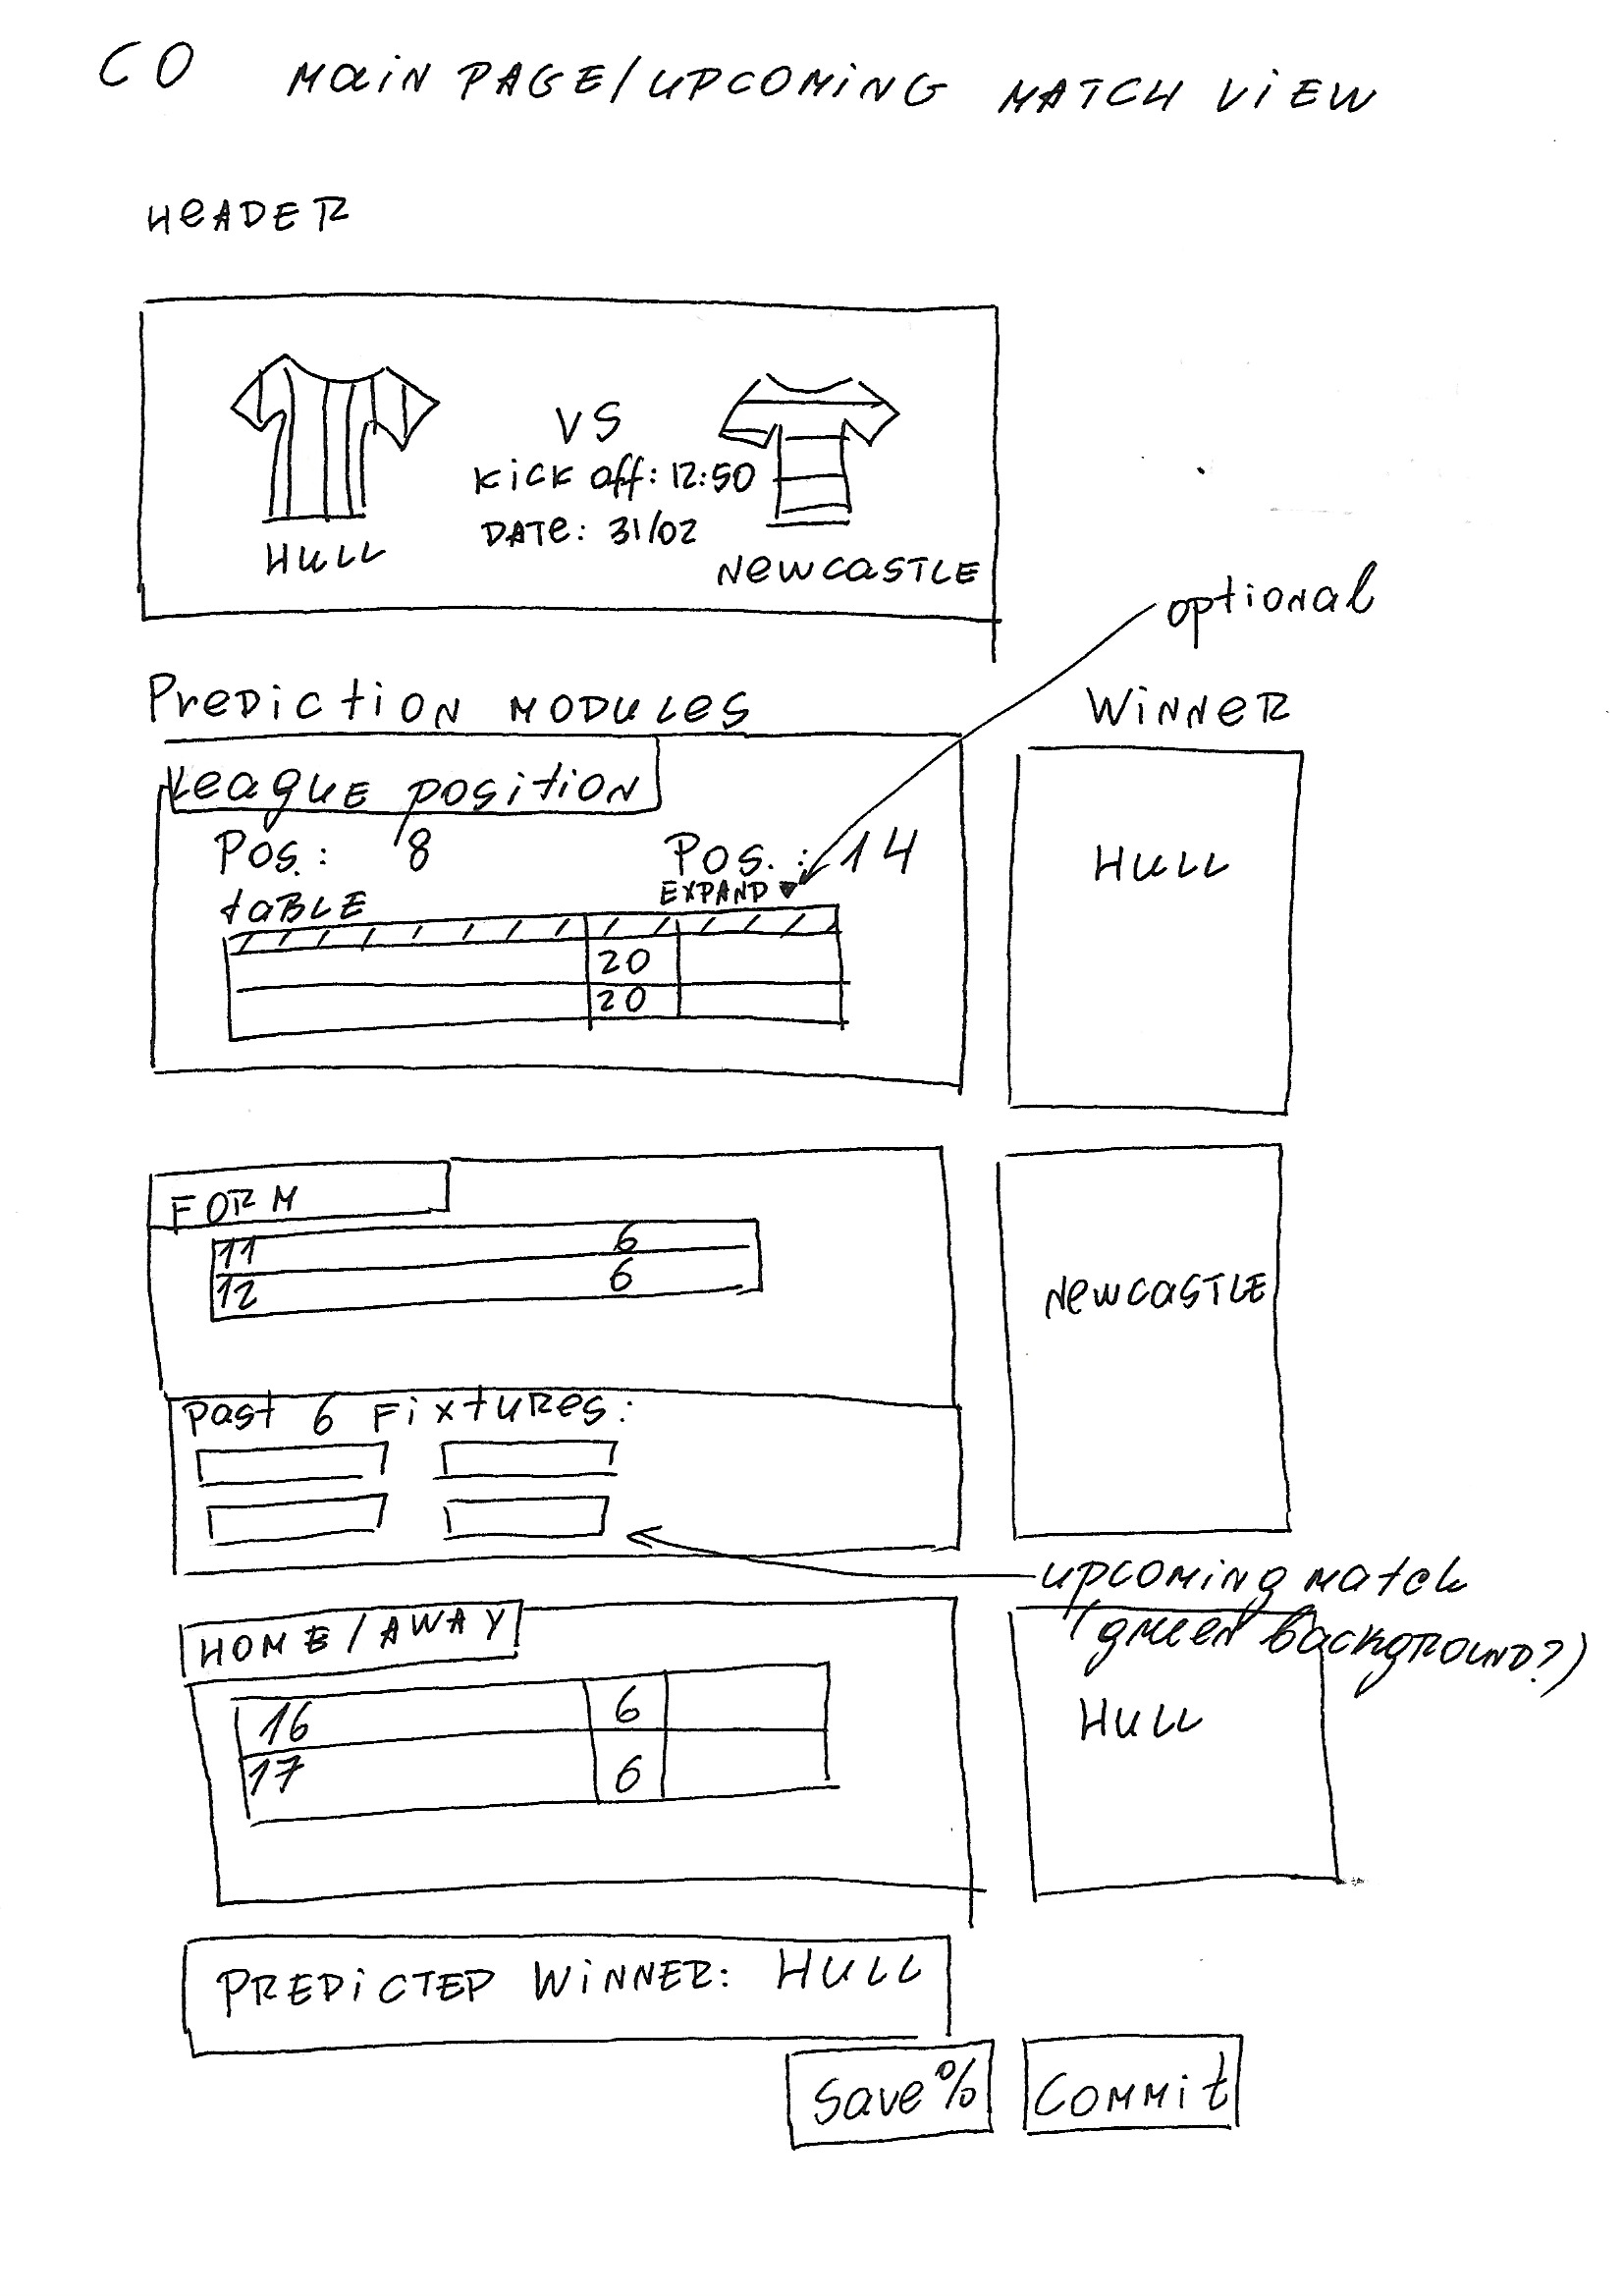 CO MAIN PAGE/UPCOMING MATCH VIEW
HEADER
VS
KICK Off: 12:50
DATE: 31/02
HULL
NEWCASTLE
optional
PREDICTION MODULES
WINNER
League position
Pos.: 8
Pos.: 14
EXPAND ▼
TABLE
20
20
HULL
FORM
11 6
12 6
NEWCASTLE
Past 6 FIXTURES:
UPCOMING MATCH
(green BACKGROUND?)
HOME/AWAY
16 6
17 6
HULL
PREDICTED WINNER: HULL
Save %
COMMIT